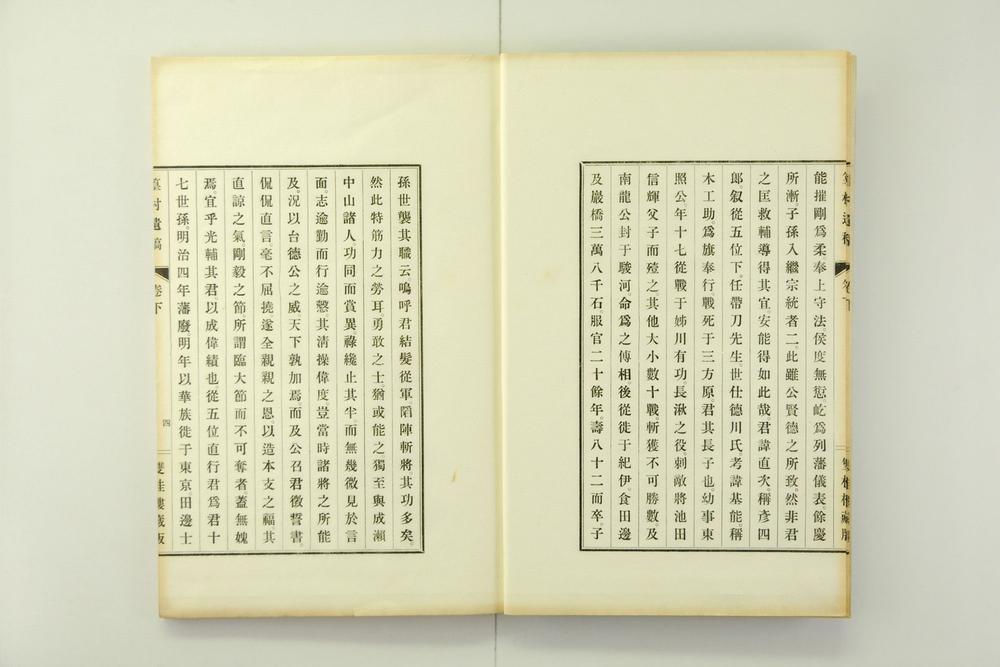 能摧剛爲柔奉上守法侯度無愆屹爲列藩儀表餘慶
所漸子孫入繼宗統者二此雖公賢德之所致然非君
之匡救輔導得其宜安能得如此哉君諱直次稱彥四
郎叙從五位下任帶刀先生世仕德川氏考諱基能稱
木工助爲旗奉行戰死于三方原君其長子也幼事東
照公年十七從戰于姊川有功長湫之役刺敵將池田
信輝父子而殪之其他大小數十戰斬獲不可勝數及
南龍公封于駿河命爲之傅相後從徙于紀伊食田邊
及嚴橋三萬八千石服官二十餘年壽八十二而卒子
孫世襲其職云嗚呼君結髮從軍䧟陣斬將其功多矣
然此特筋力之勞耳勇敢之士猶或能之獨至與成瀨
中山諸人功同而賞異祿纔止其半而無幾微見於言
面志逾勤而行逾愨其淸操偉度豈當時諸將之所能
及況以台德公之威天下孰加焉而及公召君徵誓書
侃侃直言毫不屈撓遂全親親之恩以造本支之福其
直諒之氣剛毅之節所謂臨大節而不可奪者蓋無媿
焉宜乎光輔其君以成偉績也從五位直行君爲君十
七世孫明治四年藩廢明年以華族徙于東京田邊士
村遺稿 卷下 四 雙桂樓藏版